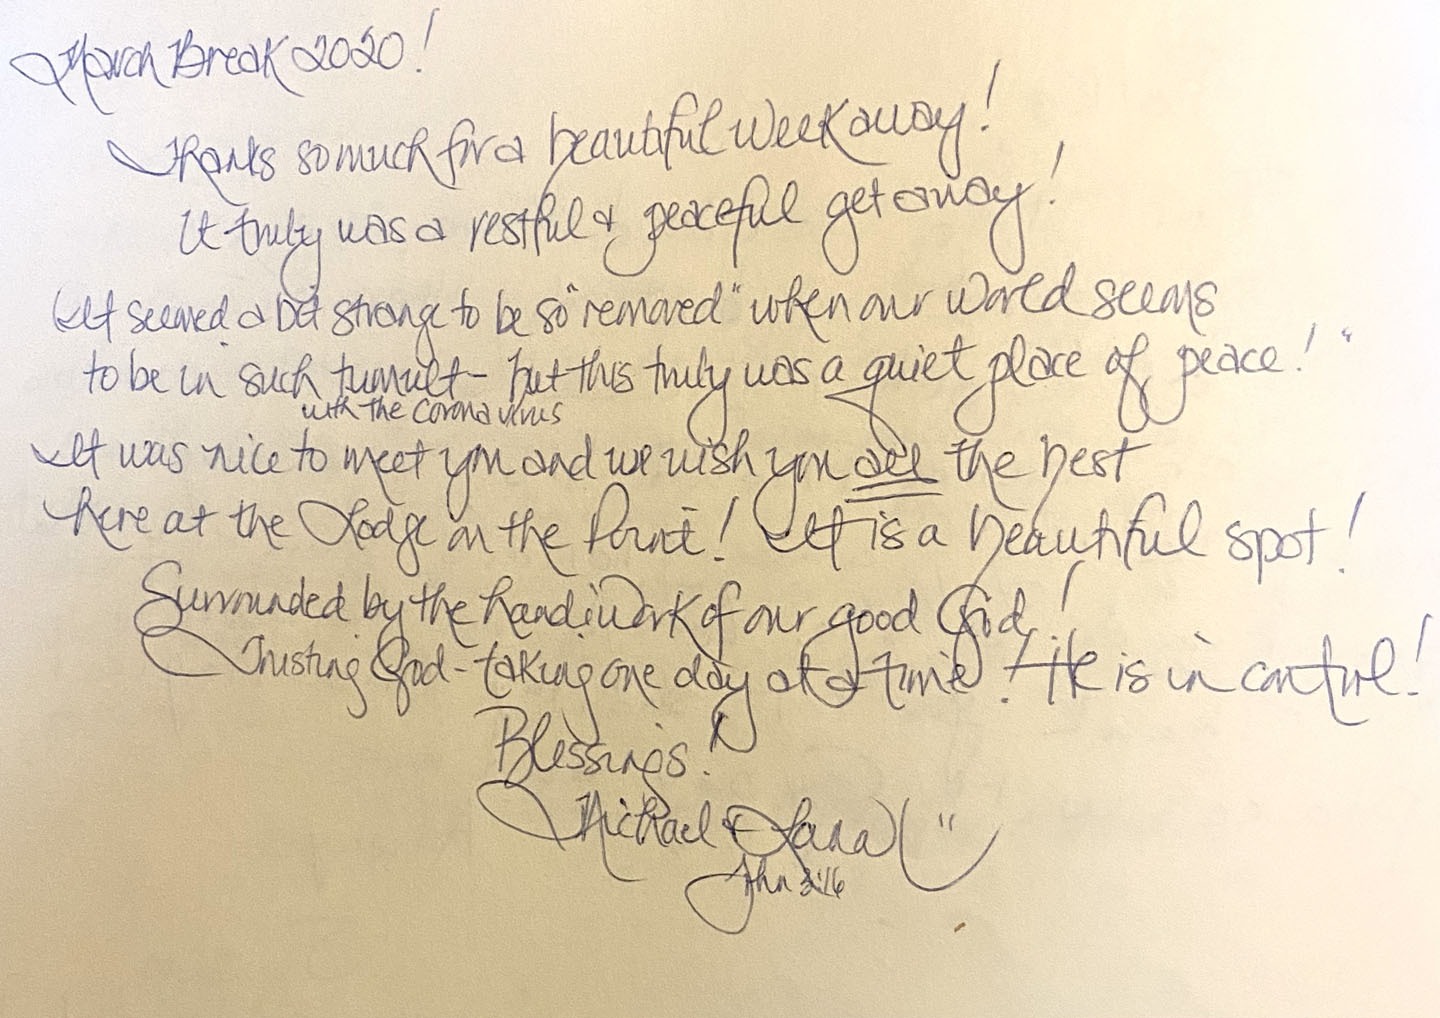 March Break 2020!
Thanks so much for a beautiful week away!
It truly was a restful & peaceful get away!
It seemed a bit strange to be so "removed" when our world seems
to be in such tumult - but this truly was a quiet place of peace! "
with the corona virus
It was nice to meet you and we wish you all the best
here at the Lodge on the Point! It is a beautiful spot!
Surrounded by the handiwork of our good God!
Trusting God - taking one day at a time! He is in control!
Blessings!
Michael & Lana
John 3:16